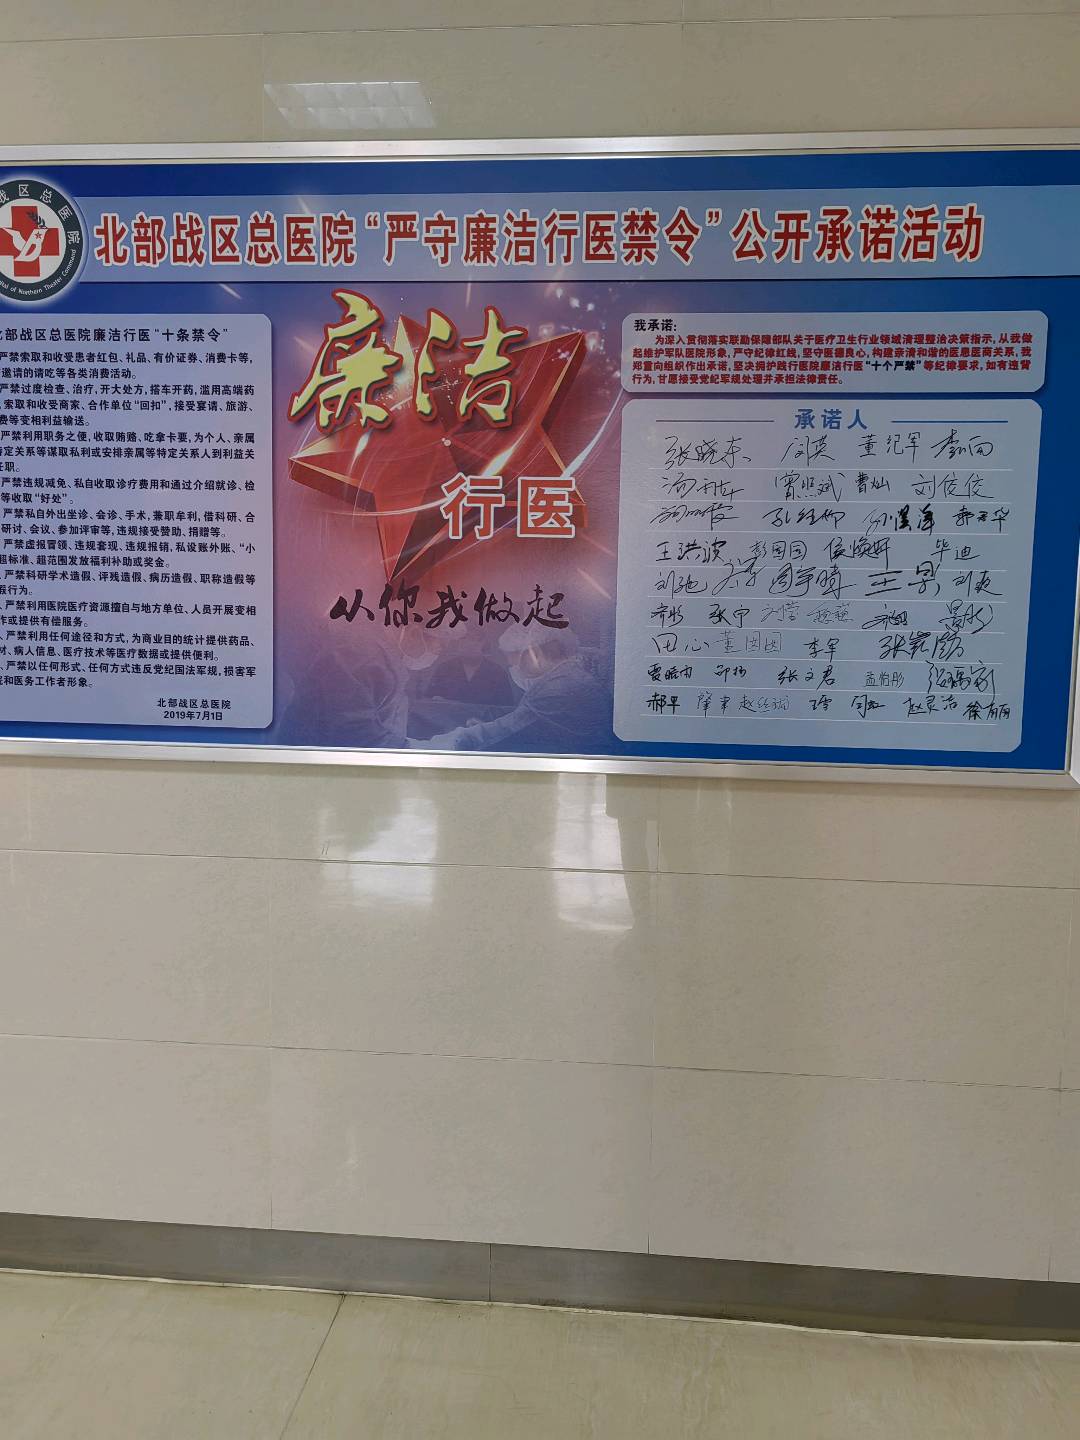 战区总医院
ital of Northern Theater Command
北部战区总医院“严守廉洁行医禁令”公开承诺活动
北部战区总医院廉洁行医“十条禁令”
严禁索取和收受患者红包、礼品、有价证券、消费卡等,
邀请的请吃等各类消费活动。
严禁过度检查、治疗,开大处方,搭车开药,滥用高端药
,索取和收受商家、合作单位“回扣”,接受宴请、旅游、
费等变相利益输送。
严禁利用职务之便,收取贿赂、吃拿卡要,为个人、亲属
特定关系等谋取私利或安排亲属等特定关系人到利益关
任职。
严禁违规减免、私自收取诊疗费用和通过介绍就诊、检
等收取“好处”。
严禁私自外出坐诊、会诊、手术,兼职牟利,借科研、合
研讨、会议、参加评审等,违规接受赞助、捐赠等。
严禁虚报冒领、违规套现、违规报销,私设账外账、“小
超标准、超范围发放福利补助或奖金。
、严禁科研学术造假、评残造假、病历造假、职称造假等
假行为。
、严禁利用医院医疗资源擅自与地方单位、人员开展变相
作或提供有偿服务。
、严禁利用任何途径和方式,为商业目的统计提供药品、
材、病人信息、医疗技术等医疗数据或提供便利。
、严禁以任何形式、任何方式违反党纪国法军规,损害军
院和医务工作者形象。
北部战区总医院
2019年7月1日
廉洁
行医
从你我做起
我承诺:
为深入贯彻落实联勤保障部队关于医疗卫生行业领域清理整治决策指示,从我做
起维护军队医院形象,严守纪律红线,坚守医德良心,构建亲清和谐的医患医商关系,我
郑重向组织作出承诺,坚决拥护践行医院廉洁行医“十个严禁”等纪律要求,如有违背
行为,甘愿接受党纪军规处理并承担法律责任。
承诺人
张晓东 闫英 董纪军
曾照斌 曹灿 刘俊俊
王洪波 彭园园 侯焕妍 毕迪
刘驰 周宇晴 王昊 刘爽
齐彤 张宁 刘莹 景彤
田心 董园园 李军
贾皓南 邵杨 张文君 孟伯彤
郝早 肇丰 赵丝雨 王雪 闫虹 赵灵洁 徐有丽